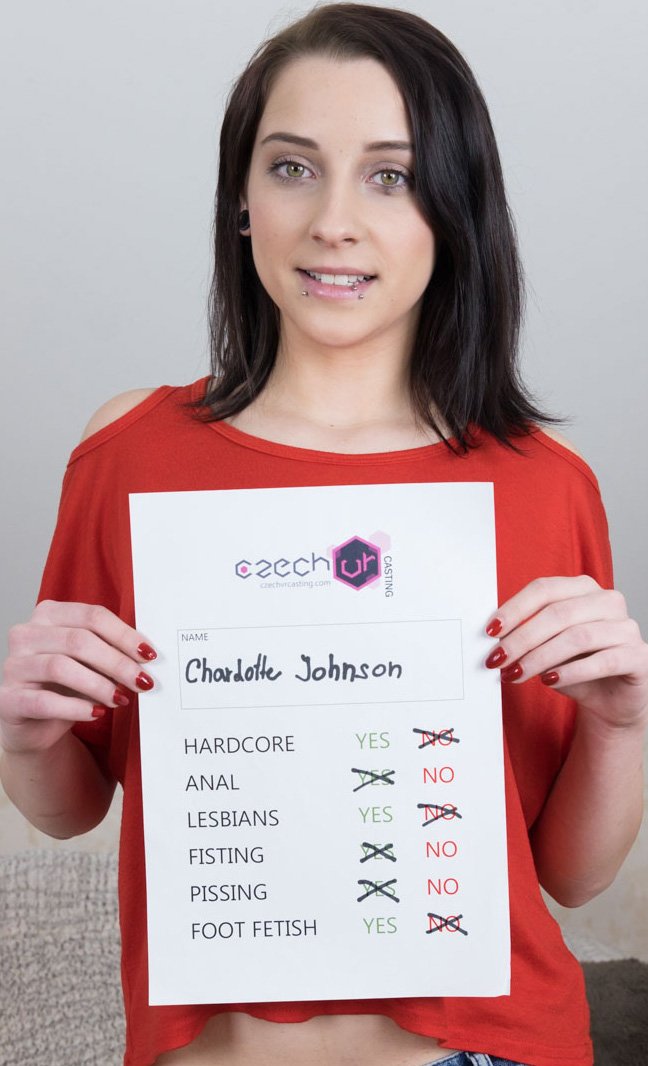 czech vr
CASTING
czechvrcasting.com
NAME
Charlotte Johnson
HARDCORE YES NO
ANAL YES NO
LESBIANS YES NO
FISTING YES NO
PISSING YES NO
FOOT FETISH YES NO